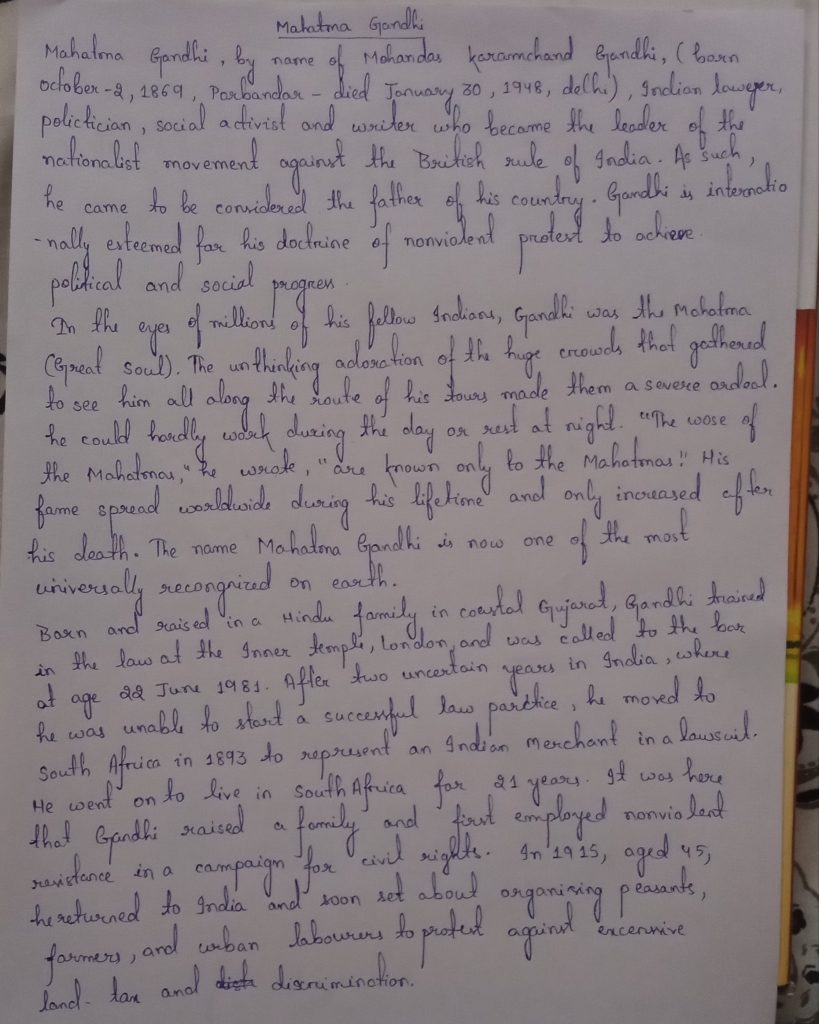 Mahatma Gandhi
Mahatma Gandhi, by name of Mohandas karamchand Gandhi, (born
october-2, 1869, Porbandar - died January 30, 1948, delhi), Indian laweyer,
polictician, social activist and writer who became the leader of the
nationalist movement against the British rule of India. As such,
he came to be considered the father of his country. Gandhi is internatio
-nally esteemed for his doctrine of nonviolent protest to achieve
political and social progress.
In the eyes of millions of his fellow Indians, Gandhi was the Mahatma
(Great soul). The unthinking adoration of the huge crowds that gathered
to see him all along the route of his tours made them a severe ordeal.
he could hardly work during the day or rest at night. "The wose of
the Mahatmas," he wrote, "are known only to the Mahatmas!" His
fame spread worldwide during his lifetime and only increased after
his death. The name Mahatma Gandhi is now one of the most
universally recongnized on earth.
Born and raised in a Hindu family in coastal Gujarat, Gandhi trained
in the law at the Inner temple, London, and was called to the bar
at age 22 June 1981. After two uncertain years in India, where
he was unable to start a successful law parctice, he moved to
South Africa in 1893 to represent an Indian merchant in a lawsuit.
He went on to live in South Africa for 21 years. It was here
that Gandhi raised a family and first employed nonviolent
resistance in a campaign for civil rights. In 1915, aged 45,
he returned to India and soon set about organising peasants,
farmers, and urban labourers to protest against excessive
land-tax and discrimination.